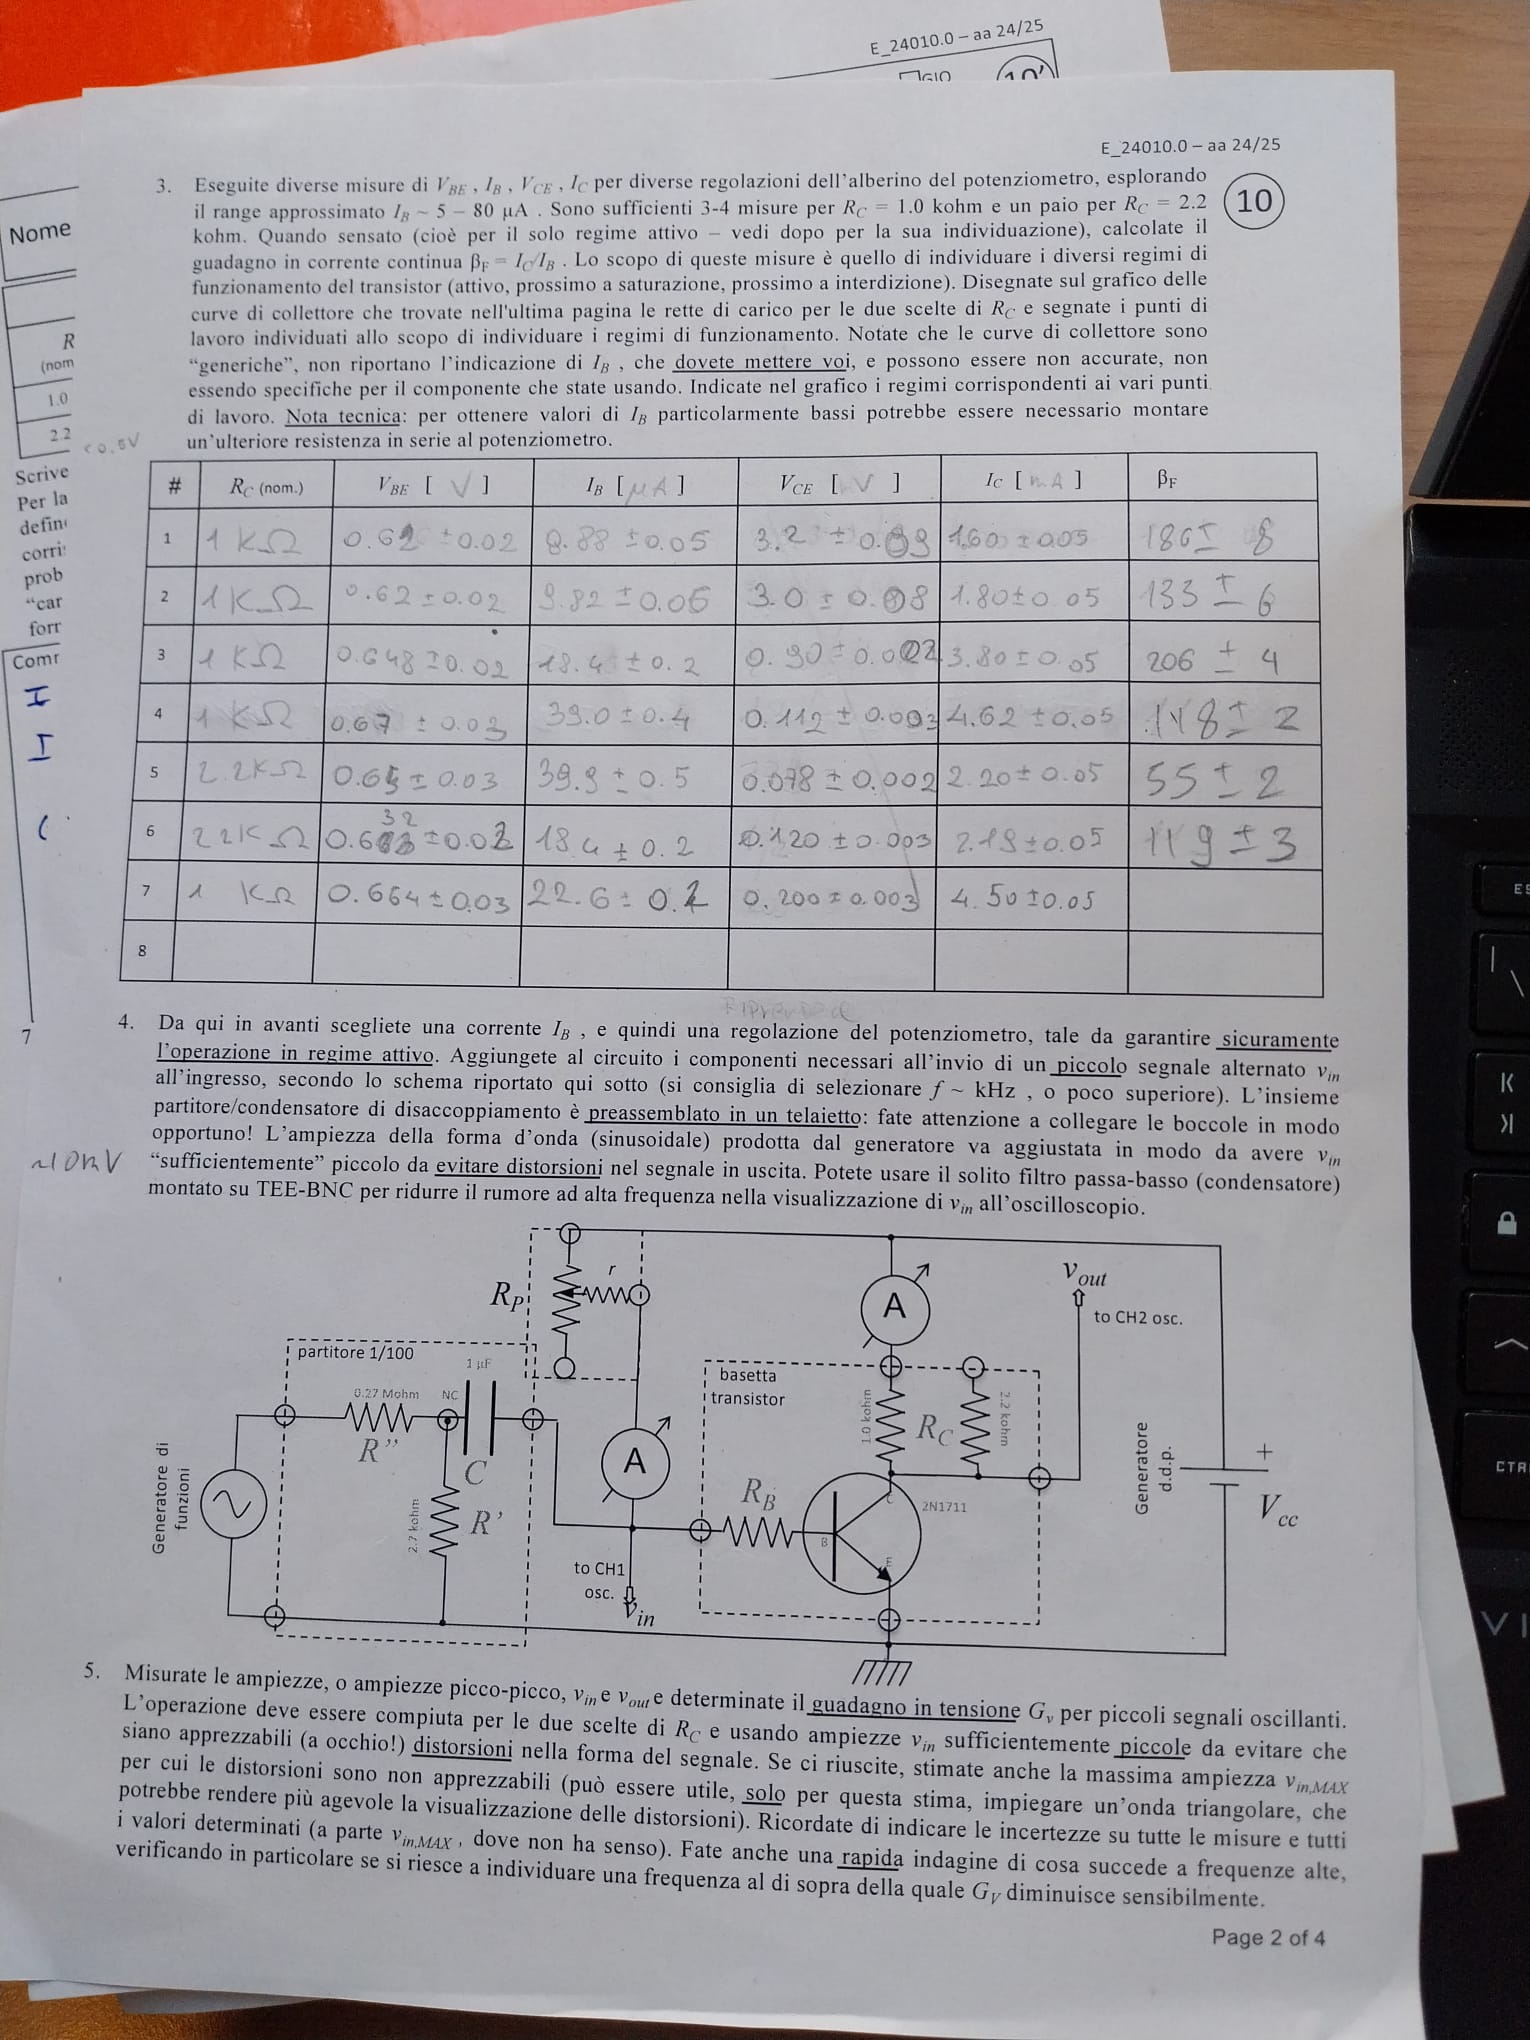 E_24010.0 – aa 24/25
E_24010.0 – aa 24/25
3. Eseguite diverse misure di VBE , IB , VCE , IC per diverse regolazioni dell'alberino del potenziometro, esplorando
il range approssimato IB ~ 5 – 80 µA . Sono sufficienti 3-4 misure per RC = 1.0 kohm e un paio per RC = 2.2
10
kohm. Quando sensato (cioè per il solo regime attivo – vedi dopo per la sua individuazione), calcolate il
guadagno in corrente continua βF = IC/IB . Lo scopo di queste misure è quello di individuare i diversi regimi di
funzionamento del transistor (attivo, prossimo a saturazione, prossimo a interdizione). Disegnate sul grafico delle
curve di collettore che trovate nell'ultima pagina le rette di carico per le due scelte di RC e segnate i punti di
lavoro individuati allo scopo di individuare i regimi di funzionamento. Notate che le curve di collettore sono
“generiche”, non riportano l'indicazione di IB , che dovete mettere voi, e possono essere non accurate, non
essendo specifiche per il componente che state usando. Indicate nel grafico i regimi corrispondenti ai vari punti
di lavoro. Nota tecnica: per ottenere valori di IB particolarmente bassi potrebbe essere necessario montare
un'ulteriore resistenza in serie al potenziometro.
Nome
R
(nom
1.0
2.2
<0.5V
Scrive
Per la
defin
corri
prob
“car
forr
Comr
7
# RC (nom.) VBE [ V ] IB [ µA ] VCE [ V ] IC [ mA ] βF
1 1 KΩ 0.62 ±0.02 8.88 ±0.05 3.2 ± 0.09 1.60 ±0.05 180± 8
2 1 KΩ 0.62 ±0.02 9.82 ±0.06 3.0 ± 0.08 1.80±0.05 133 ± 6
3 1 KΩ 0.648 ±0.02 18.4 ± 0.2 0.90 ± 0.002 3.80 ± 0.05 206 ± 4
4 1 KΩ 0.67 ± 0.03 39.0 ± 0.4 0.112 ± 0.003 4.62 ±0.05 118 ± 2
5 2.2KΩ 0.65 ± 0.03 39.9 ± 0.5 0.078 ± 0.002 2.20 ± 0.05 55 ± 2
6 2.2K Ω 0.632 ±0.02 18.4 ± 0.2 0.120 ± 0.003 2.19 ±0.05 119 ± 3
7 1 KΩ 0.664 ± 0.03 22.6 ± 0.2 0.200 ± 0.003 4.50 ±0.05
8
4. Da qui in avanti scegliete una corrente IB , e quindi una regolazione del potenziometro, tale da garantire sicuramente
l'operazione in regime attivo. Aggiungete al circuito i componenti necessari all'invio di un piccolo segnale alternato vin
all'ingresso, secondo lo schema riportato qui sotto (si consiglia di selezionare f ~ kHz , o poco superiore). L'insieme
partitore/condensatore di disaccoppiamento è preassemblato in un telaietto: fate attenzione a collegare le boccole in modo
opportuno! L'ampiezza della forma d'onda (sinusoidale) prodotta dal generatore va aggiustata in modo da avere vin
~10mV
“sufficientemente” piccolo da evitare distorsioni nel segnale in uscita. Potete usare il solito filtro passa-basso (condensatore)
montato su TEE-BNC per ridurre il rumore ad alta frequenza nella visualizzazione di vin all'oscilloscopio.
RP
r
A
vout
to CH2 osc.
partitore 1/100
1 µF
0.27 Mohm
NC
R”
C
R'
2.7 kohm
Generatore di
funzioni
A
to CH1
osc.
vin
basetta
transistor
1.0 kohm
RC
2.2 kohm
RB
B
C
E
2N1711
Generatore
d.d.p.
+
Vcc
5. Misurate le ampiezze, o ampiezze picco-picco, vin e vout e determinate il guadagno in tensione Gv per piccoli segnali oscillanti.
L'operazione deve essere compiuta per le due scelte di RC e usando ampiezze vin sufficientemente piccole da evitare che
siano apprezzabili (a occhio!) distorsioni nella forma del segnale. Se ci riuscite, stimate anche la massima ampiezza vin,MAX
per cui le distorsioni sono non apprezzabili (può essere utile, solo per questa stima, impiegare un'onda triangolare, che
potrebbe rendere più agevole la visualizzazione delle distorsioni). Ricordate di indicare le incertezze su tutte le misure e tutti
i valori determinati (a parte vin,MAX , dove non ha senso). Fate anche una rapida indagine di cosa succede a frequenze alte,
verificando in particolare se si riesce a individuare una frequenza al di sopra della quale GV diminuisce sensibilmente.
Page 2 of 4